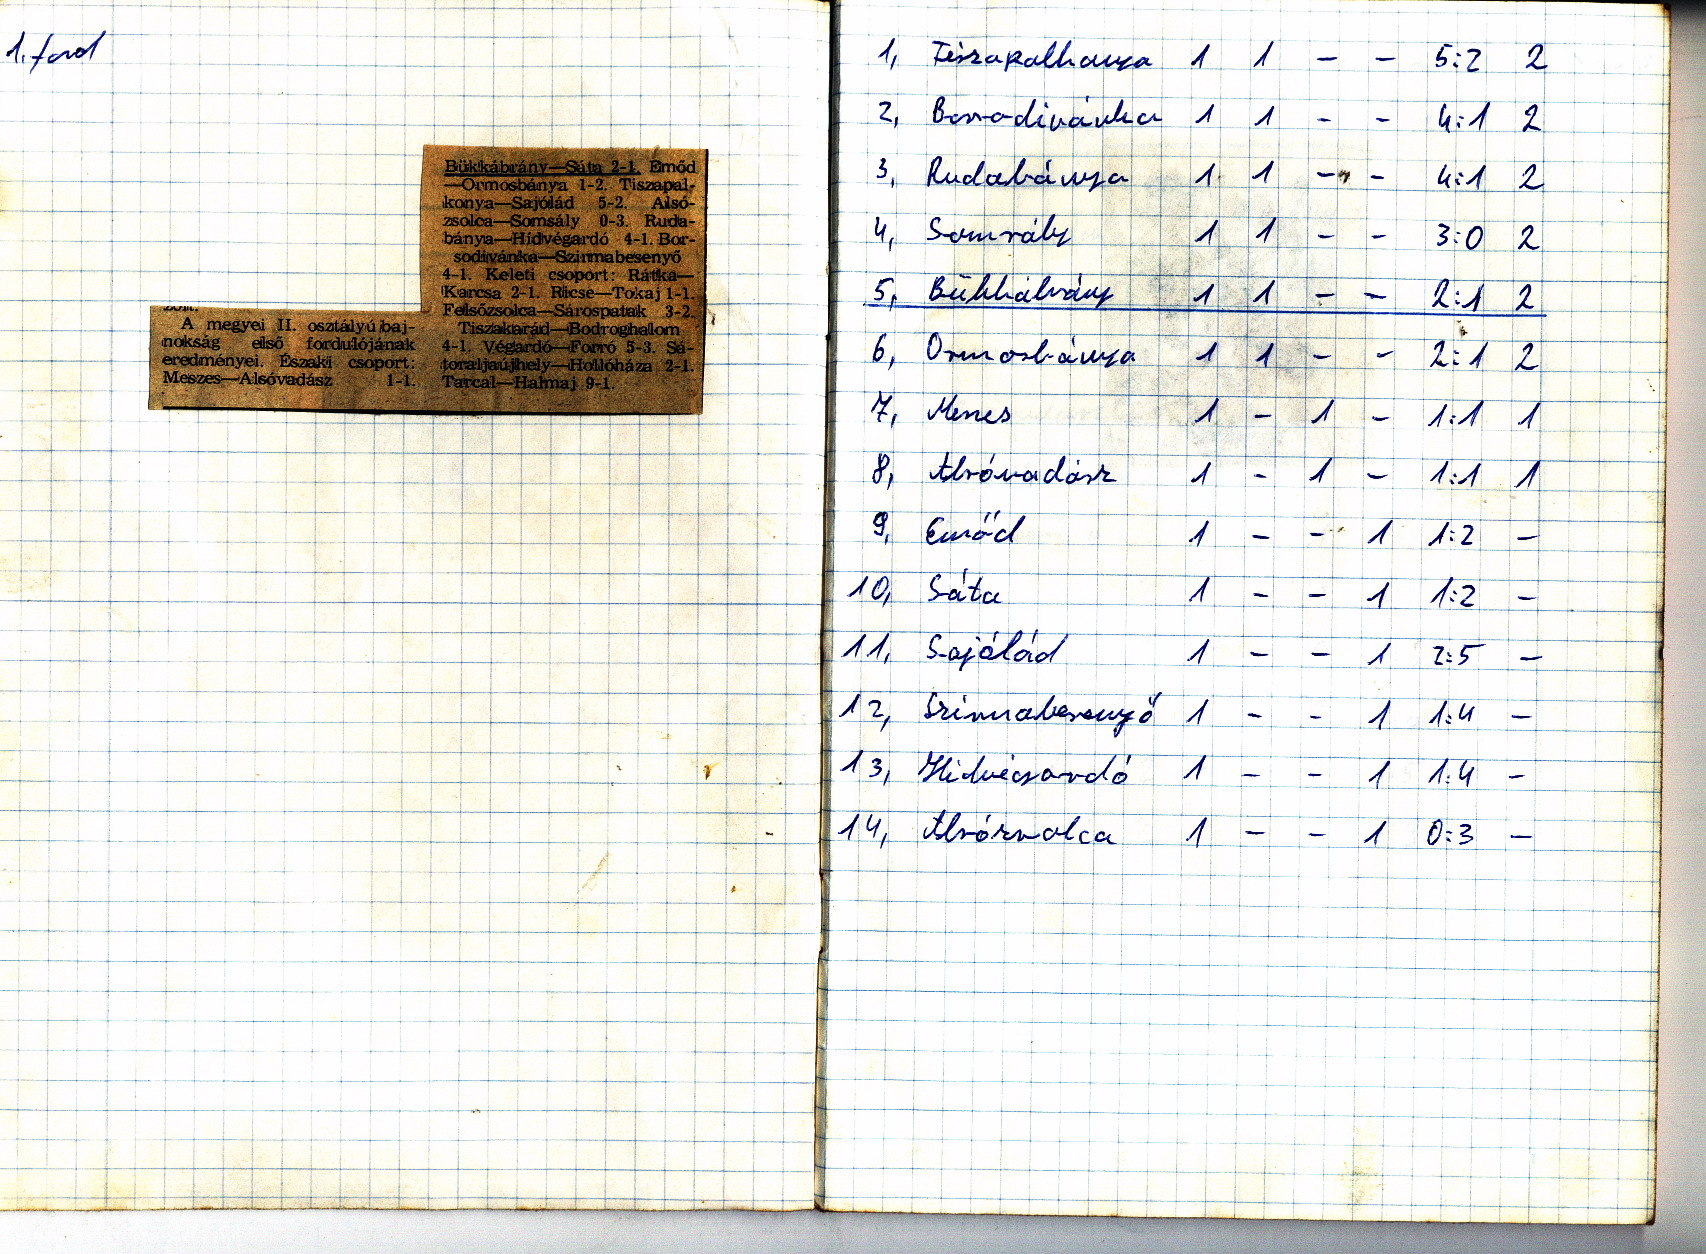 1. ford
zom.
A megyei II. osztályú baj-
nokság első fordulójának
eredményei. Északi csoport:
Meszes—Alsóvadász 1-1.
Bükkábrány—Sáta 2-1. Emőd
—Ormosbánya 1-2. Tiszapal-
konya—Sajólád 5-2. Alsó-
zsolca—Somsály 0-3. Ruda-
bánya—Hidvégardó 4-1. Bor-
sodivánka—Szirmabesenyő
4-1. Keleti csoport: Rátka—
Karcsa 2-1. Ricse—Tokaj 1-1.
Felsőzsolca—Sárospatak 3-2.
Tiszakarád—Bodroghalom
4-1. Végardó—Forró 5-3. Sá-
toraljaújhely—Hollóháza 2-1.
Tarcal—Halmaj 9-1.
1, Tiszapalkonya 1 1 – – 5:2 2
2, Borsodivánka 1 1 – – 4:1 2
3, Rudabánya 1 1 – – 4:1 2
4, Somsály 1 1 – – 3:0 2
5, Bükkábrány 1 1 – – 2:1 2
6, Ormosbánya 1 1 – – 2:1 2
7, Meszes 1 – 1 – 1:1 1
8, Alsóvadász 1 – 1 – 1:1 1
9, Emőd 1 – – 1 1:2 –
10, Sáta 1 – – 1 1:2 –
11, Sajólád 1 – – 1 2:5 –
12, Szirmabesenyő 1 – – 1 1:4 –
13, Hidvégardó 1 – – 1 1:4 –
14, Alsózsolca 1 – – 1 0:3 –